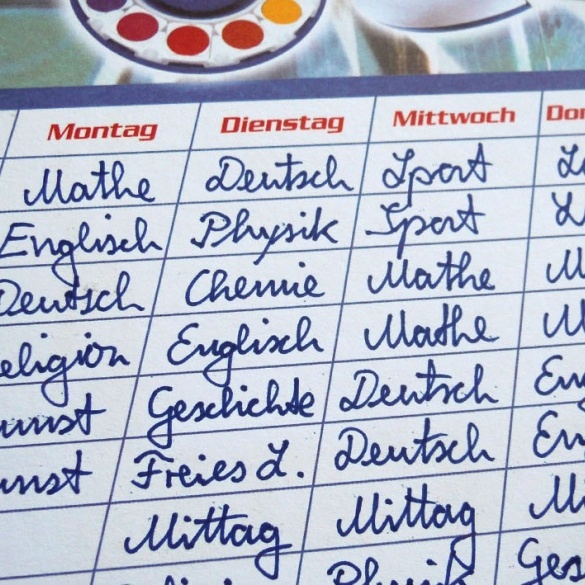 Montag Dienstag Mittwoch
Mathe Deutsch Sport
Englisch Physik Sport
Deutsch Chemie Mathe
eligion Englisch Mathe
unst Geschichte Deutsch
unst Freies L. Deutsch
Mittag Mittag
Physik Ges